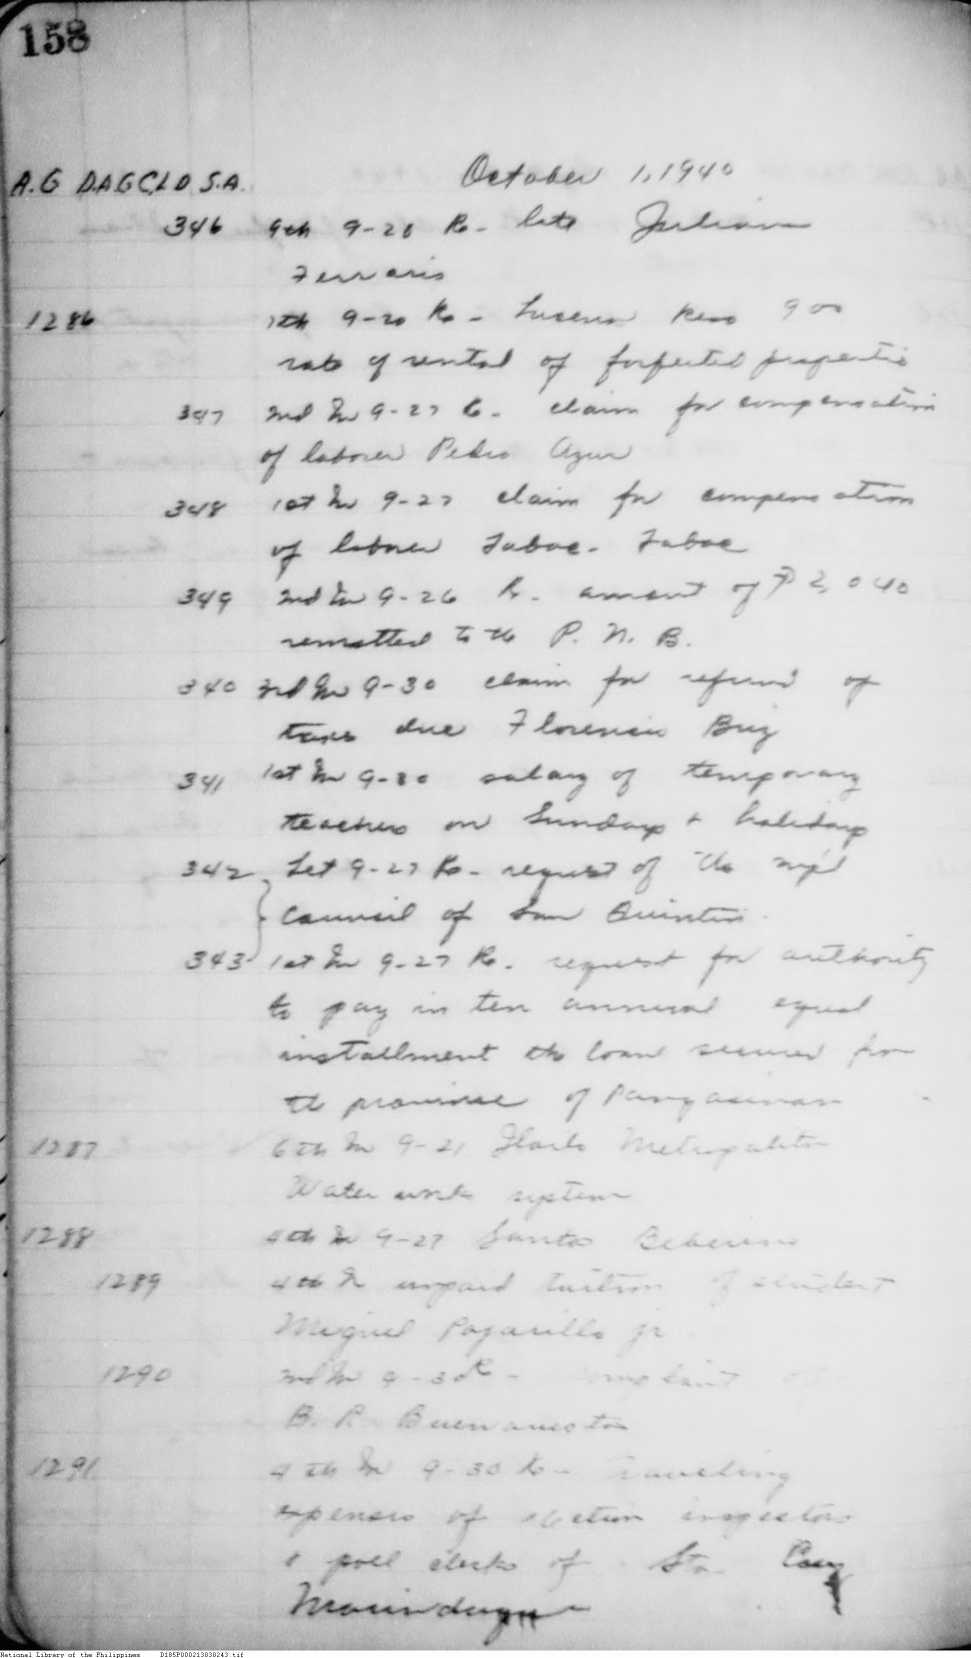 158
October 1, 1940
A.G D.A.G C,L D S.A.
346 9th 9-20 Re- late Julian
Ferraris
1286 7th 9-20 Re- Lucena 900
rate of rental of forfeited properties
347 2nd In 9-27 Re- claim for compensation
of laborer Pedro Azur
348 1st In 9-27 claim for compensation
of laborer Tabac- Tabac
349 2nd In 9-26 Re- amount of ₱ 2,040
remitted to the P. N. B.
340 3rd In 9-30 claim for refund of
taxes due Florencio Buiz
341 1st In 9-30 salary of temporary
teachers on Sundays & holidays
342 Let 9-27 Re- request of the mp'l
Council of San Quintin
343 1st In 9-27 Re- request for authority
to pay in ten annual equal
installment the loan secured from
the province of Pangasinan
1287 6th In 9-21 Metropolitan
Water works system
1288 4th In 9-27 Santos
1289 4th In unpaid tuition of student
Miguel Pajarillo jr
1290 2nd In 9-30 Re- complaint of
B. R. Buenaventura
1291 4th In 9-30 Re- Traveling
expenses of election inspectors
& poll clerks of Sta. Cruz
Marinduque
National Library of the Philippines D185P000213838243.tif